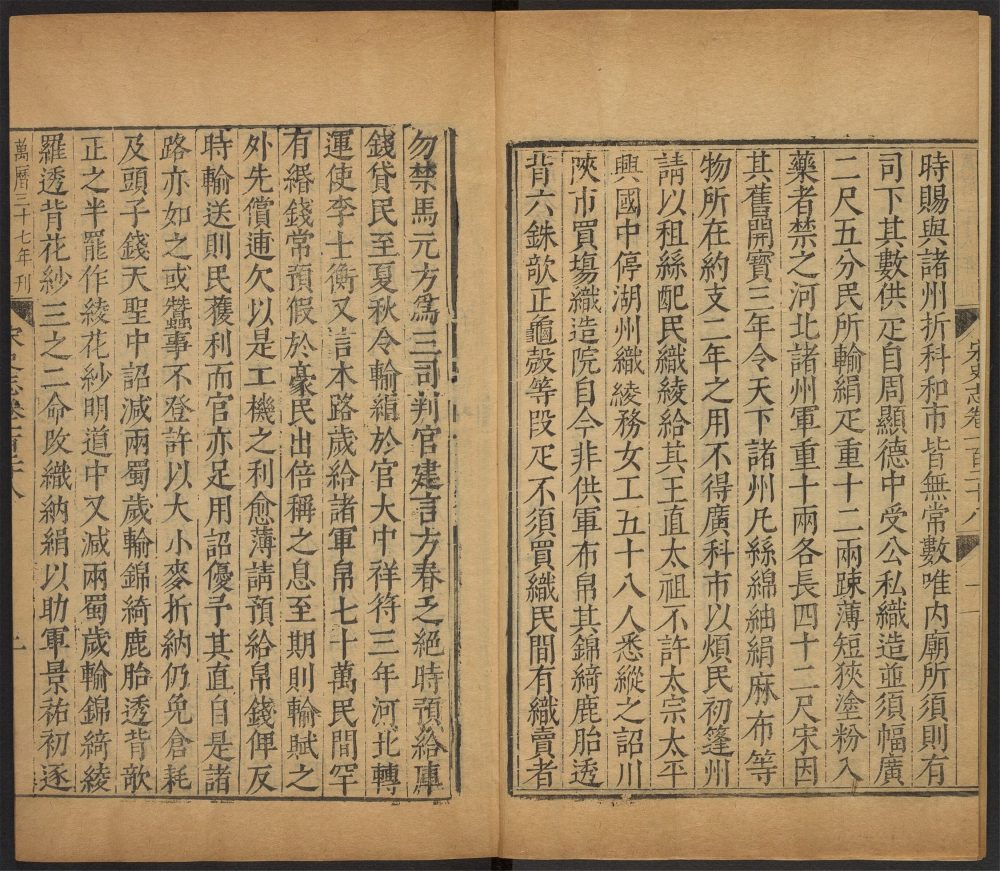 宋史志卷一百二十八
時賜與諸州折科和市皆無常數唯内廟所須則有
司下其數供疋自周顯德中受公私織造並須幅廣
二尺五分民所輸絹疋重十二兩踈薄短狹塗粉入
藥者禁之河北諸州軍重十兩各長四十二尺宋因
其舊開寶三年令天下諸州凡絲綿紬絹麻布等
物所在約支二年之用不得廣科市以煩民初篷州
請以租絲配民織綾給其王直太祖不許太宗太平
興國中停湖州織綾務女工五十八人悉縱之詔川
陝市買塲織造院自今非供軍布帛其錦綺鹿胎透
背六銖欹正龜殼等叚疋不須買織民間有織賣者
勿禁馬元方爲三司判官建言方春乏絕時預給庫
錢貸民至夏秋令輸絹於官大中祥符三年河北轉
運使李士衡又言本路歲給諸軍帛七十萬民間罕
有緡錢常預假於豪民出倍稱之息至期則輸賦之
外先償逋欠以是工機之利愈薄請預給帛錢俾及
時輸送則民獲利而官亦足用詔優予其直自是諸
路亦如之或蠶事不登許以大小麥折納仍免倉耗
及頭子錢天聖中詔減兩蜀歲輸錦綺鹿胎透背欹
正之半罷作綾花紗明道中又減兩蜀歲輸錦綺綾
羅透背花紗三之二命改織納絹以助軍景祐初逐
萬曆三十七年刊